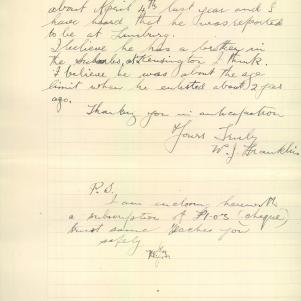 about April 4th last year and I
have heard that he was reported
to be at Limburg.
I believe he has a brother in
the at Kensington I think.
I believe he was about the age
limit when he enlisted about 2 years
ago.
Thanking you in anticipation
Yours Truly
W. J. Franklin
P.S.
I am enclosing herewith
a subscription of (cheque)
trust same reaches you
safely